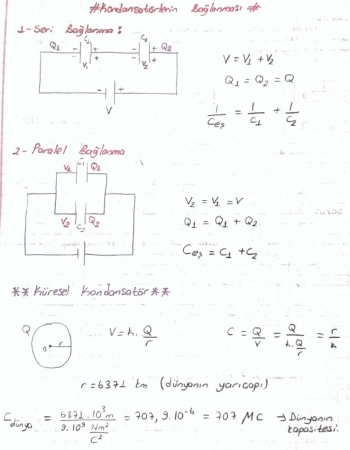 #Kondansatörlerin Bağlanması#
1- Seri Bağlanma :
Q1 C1 C1 Q2
V1 V2
V
V = V1 + V2
Q1 = Q2 = Q
1/Ceş = 1/C1 + 1/C2
2- Paralel Bağlanma
V1 C1 Q1
V2 Q2
C2
V2 = V1 = V
Q1 = Q1 + Q2
Ceş = C1 + C2
** Küresel Kondansatör **
Q r
V = k. Q/r
C = Q/V = Q/(k. Q/r) = r/k
r = 6371 km (dünyanın yarıçapı)
Cdünya = 6371.10³m / 9.10⁹ Nm²/C² = 707,9.10⁻⁶ = 707 MC → Dünyanın kapasitesi.